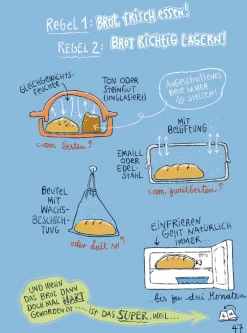 REGEL 1: BROT FRISCH ESSEN!
REGEL 2: BROT RICHTIG LAGERN!
GLEICHGEWICHTS-
FEUCHTE
TON ODER
STEINGUT
(UNGLASIERT)
ANGESCHNITTENES
BROT IMMER
SO STELLEN!
am besten ↑
MIT
BELÜFTUNG
EMAILL ODER
EDEL-
STAHL
am zweitbesten ↑
BEUTEL
MIT
WACHS-
BESCHICH-
TUNG
oder halt so ↑
EINFRIEREN
GEHT NATÜRLICH
IMMER...
...bis zu drei Monaten
UND WENN
DAS BROT DANN
DOCH MAL HART
GEWORDEN IST .... IST DAS SUPER, WEIL...
47